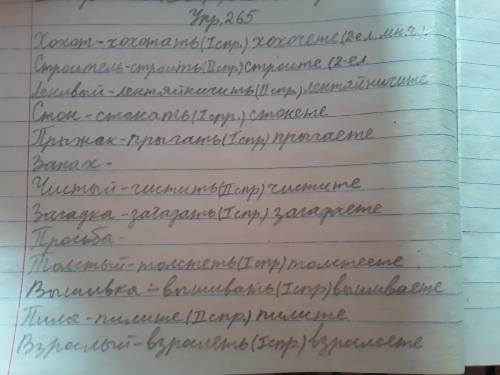 Упр. 265
Хохот-хохотать (I спр.) хохочете (2 л. мн.ч.)
Строитель-строить (II спр) строите (2-ел.
Ленивый-лентяйничить (II спр.) лентяйничите
Стон-стонать (I спр.) стонете
Прыжок-прыгать (I спр) прыгаете
Запах-
Чистый-чистить (II спр) чистите
Загадка-загадать (I спр.) загадаете
Просьба-
Толстый-толстеть (I спр) толстеете
Вышивка-вышивать (I спр) вышиваете
Пила-пилите (II спр) пилите
Взрослый-взрослеть (I спр) взрослеете